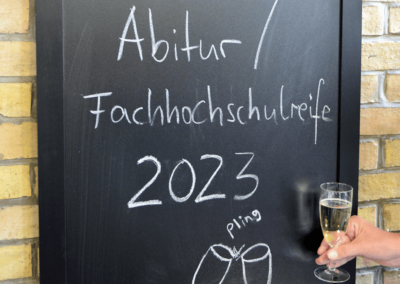 Abitur /
Fachhochschulreife
2023
pling